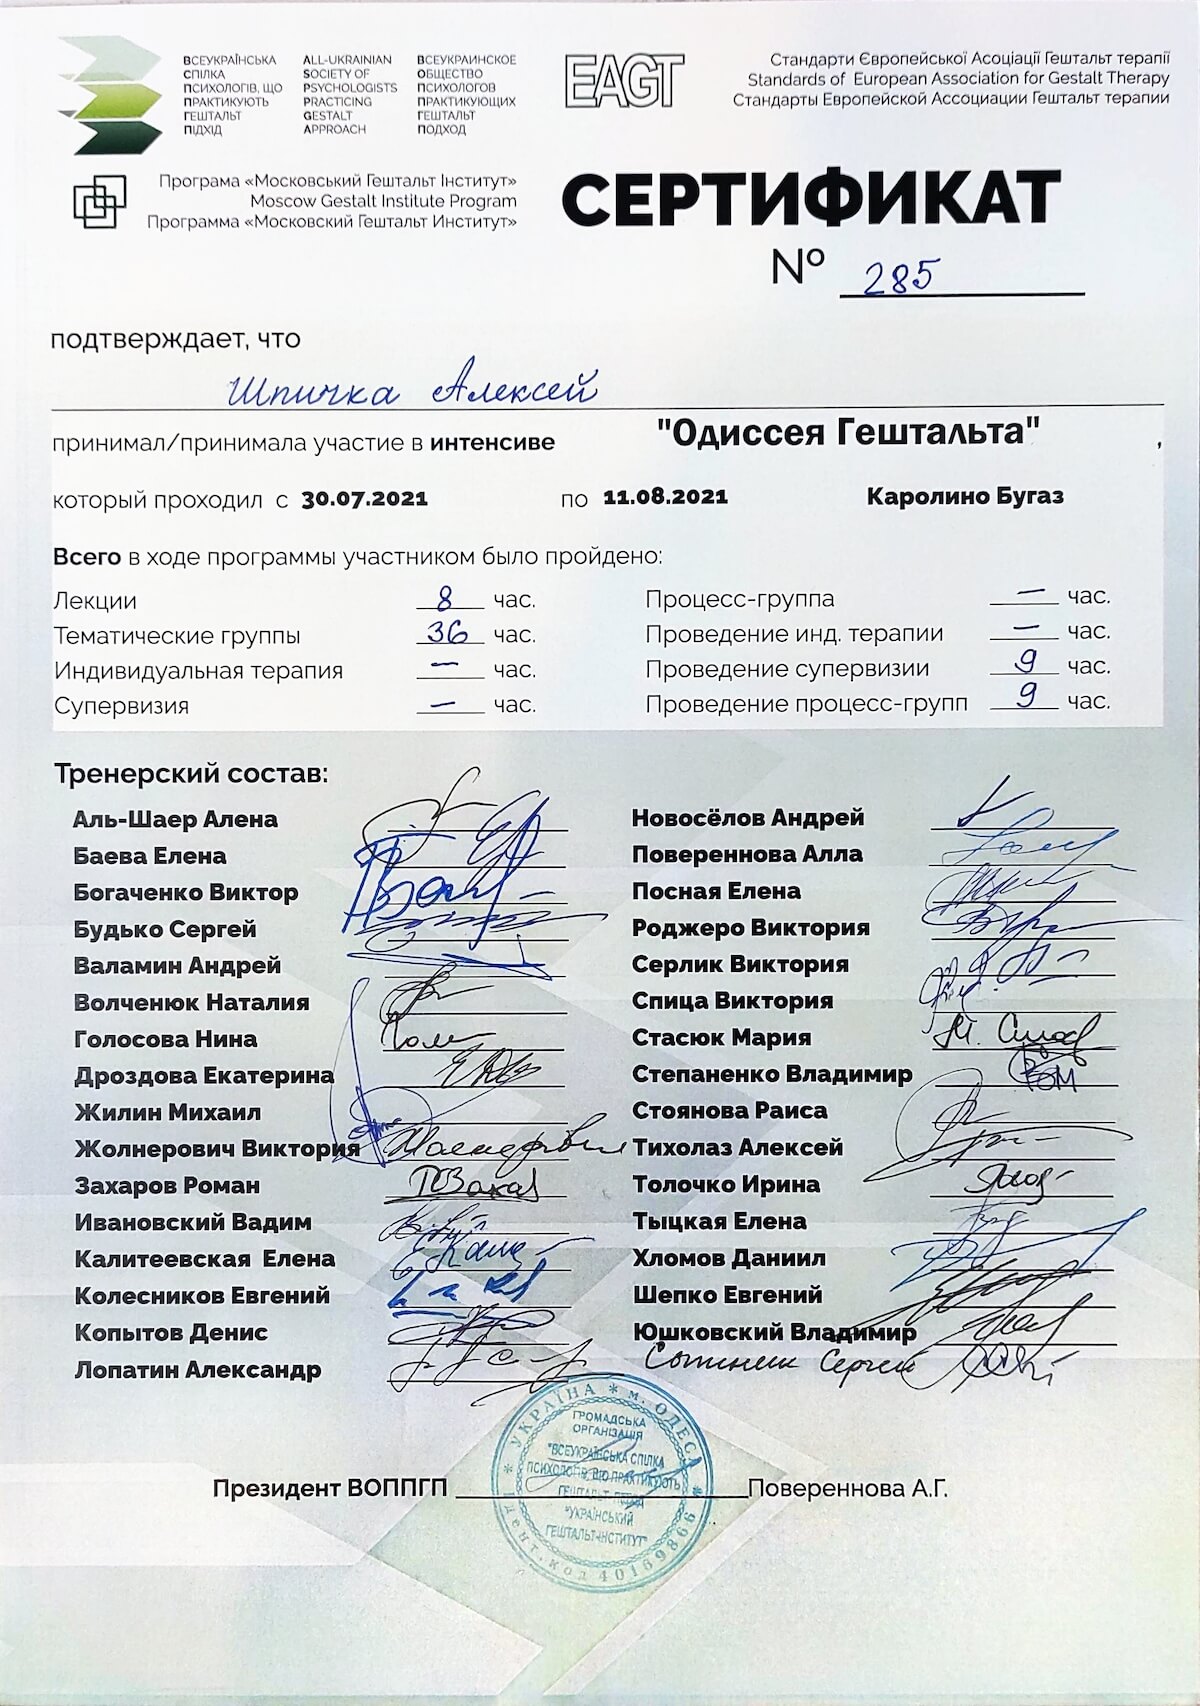 ВСЕУКРАЇНСЬКА
СПІЛКА
ПСИХОЛОГІВ, ЩО
ПРАКТИКУЮТЬ
ГЕШТАЛЬТ
ПІДХІД
ALL-UKRAINIAN
SOCIETY OF
PSYCHOLOGISTS
PRACTICING
GESTALT
APPROACH
ВСЕУКРАИНСКОЕ
ОБЩЕСТВО
ПСИХОЛОГОВ
ПРАКТИКУЮЩИХ
ГЕШТАЛЬТ
ПОДХОД
EAGT
Стандарти Європейської Асоціації Гештальт терапії
Standards of European Association for Gestalt Therapy
Стандарты Европейской Ассоциации Гештальт терапии
Програма «Московський Гештальт Інститут»
Moscow Gestalt Institute Program
Программа «Московский Гештальт Институт»
СЕРТИФИКАТ
№ 285
подтверждает, что
Шпичка Алексей
принимал/принимала участие в интенсиве "Одиссея Гештальта" ,
который проходил с 30.07.2021 по 11.08.2021 Каролино Бугаз
Всего в ходе программы участником было пройдено:
Лекции 8 час.
Тематические группы 36 час.
Индивидуальная терапия — час.
Супервизия — час.
Процесс-группа — час.
Проведение инд. терапии — час.
Проведение супервизии 9 час.
Проведение процесс-групп 9 час.
Тренерский состав:
Аль-Шаер Алена
Баева Елена
Богаченко Виктор
Будько Сергей
Валамин Андрей
Волченюк Наталия
Голосова Нина
Дроздова Екатерина
Жилин Михаил
Жолнерович Виктория
Захаров Роман
Ивановский Вадим
Калитеевская Елена
Колесников Евгений
Копытов Денис
Лопатин Александр
Новосёлов Андрей
Повереннова Алла
Посная Елена
Роджеро Виктория
Серлик Виктория
Спица Виктория
Стасюк Мария
Степаненко Владимир
Стоянова Раиса
Тихолаз Алексей
Толочко Ирина
Тыцкая Елена
Хломов Даниил
Шепко Евгений
Юшковский Владимир
Сергей
Президент ВОППГП
Повереннова А.Г.
УКРАЇНА * м. ОДЕСА *
ідент. код 40169866
ГРОМАДСЬКА
ОРГАНІЗАЦІЯ
"ВСЕУКРАЇНСЬКА СПІЛКА
ПСИХОЛОГІВ, ЩО ПРАКТИКУЮТЬ
"УКРАЇНСЬКИЙ
ГЕШТАЛЬТ-ІНСТИТУТ"